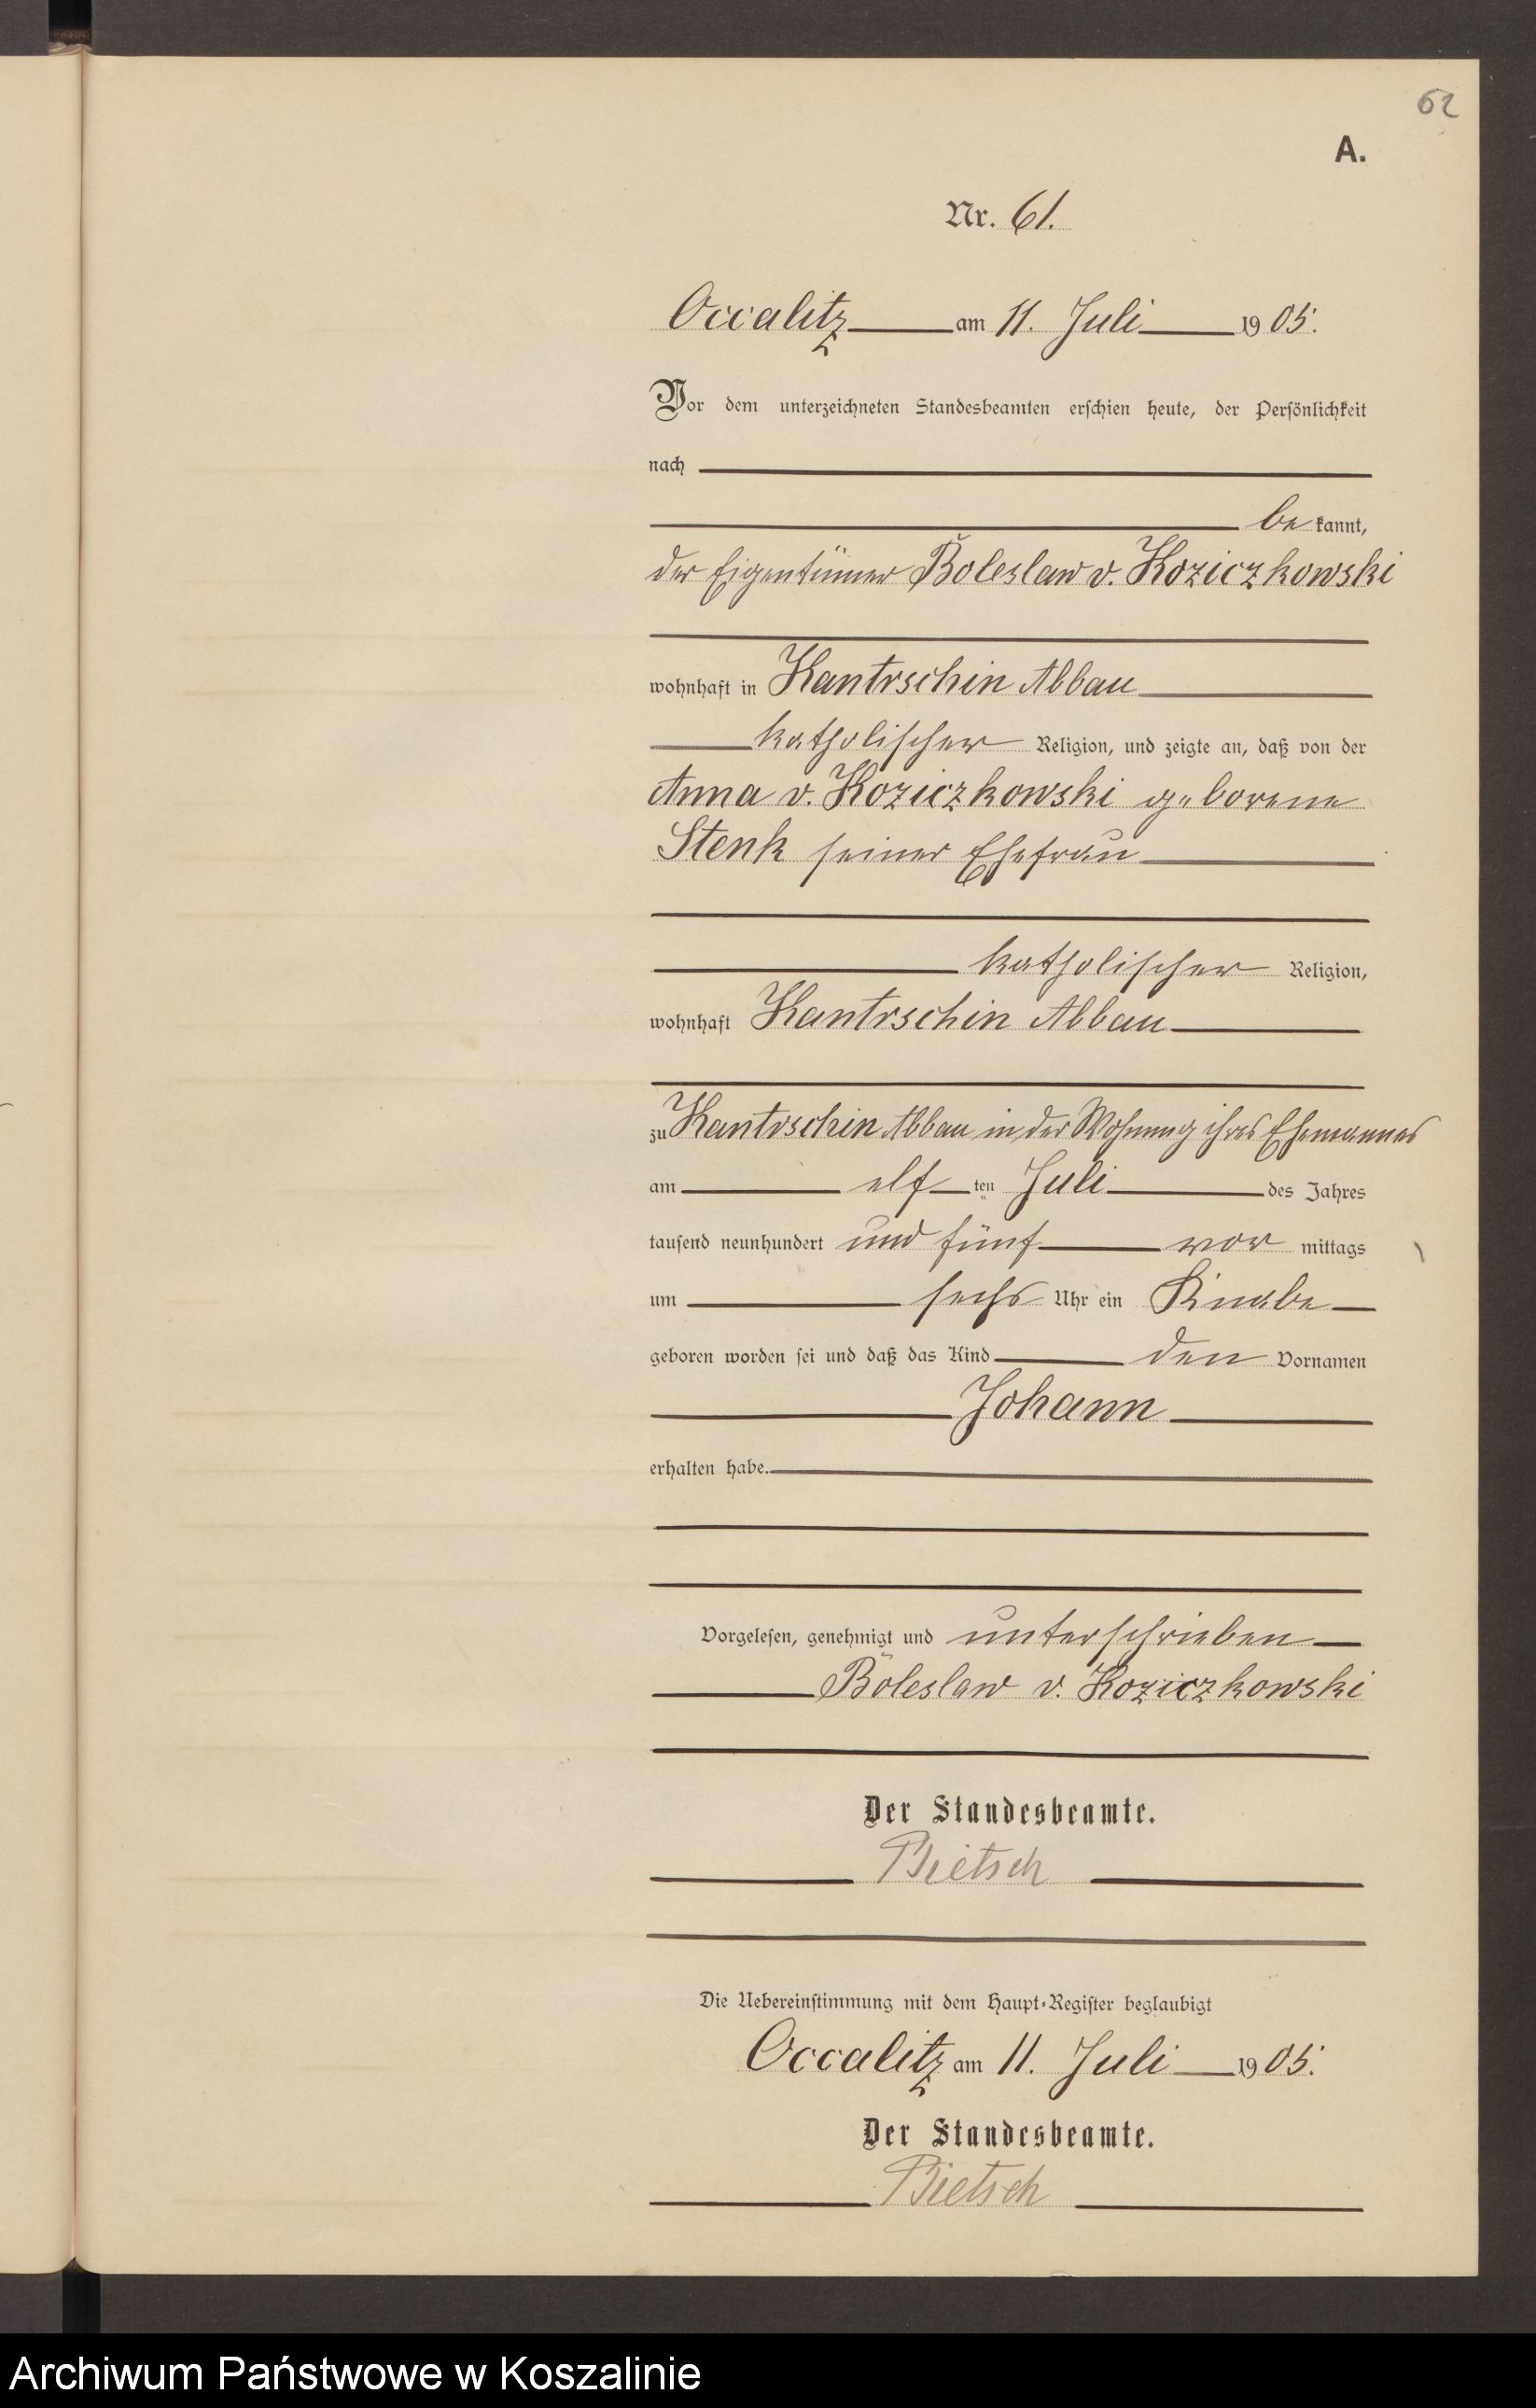 62
A.
Nr. 61.
Occalitz am 11. Juli 1905.
Vor dem unterzeichneten Standesbeamten erschien heute, der Persönlichkeit
nach
be kannt,
der Eigentümer Boleslaw v. Koziczkowski
wohnhaft in Kantrschin Abbau
katholischer Religion, und zeigte an, daß von der
Anna v. Koziczkowski geborene
Stenk seiner Ehefrau
katholischer Religion,
wohnhaft Kantrschin Abbau
zu Kantrschin Abbau in der Wohnung ihres Ehemannes
am elf ten Juli des Jahres
tausend neunhundert und fünf vor mittags
um sechs Uhr ein Knabe
geboren worden sei und daß das Kind den Vornamen
Johann
erhalten habe.
Vorgelesen, genehmigt und unterschrieben
Boleslaw v. Koziczkowski
Der Standesbeamte.
Bietsch
Die Uebereinstimmung mit dem Haupt-Register beglaubigt
Occalitz am 11. Juli 1905.
Der Standesbeamte.
Bietsch
Archiwum Państwowe w Koszalinie